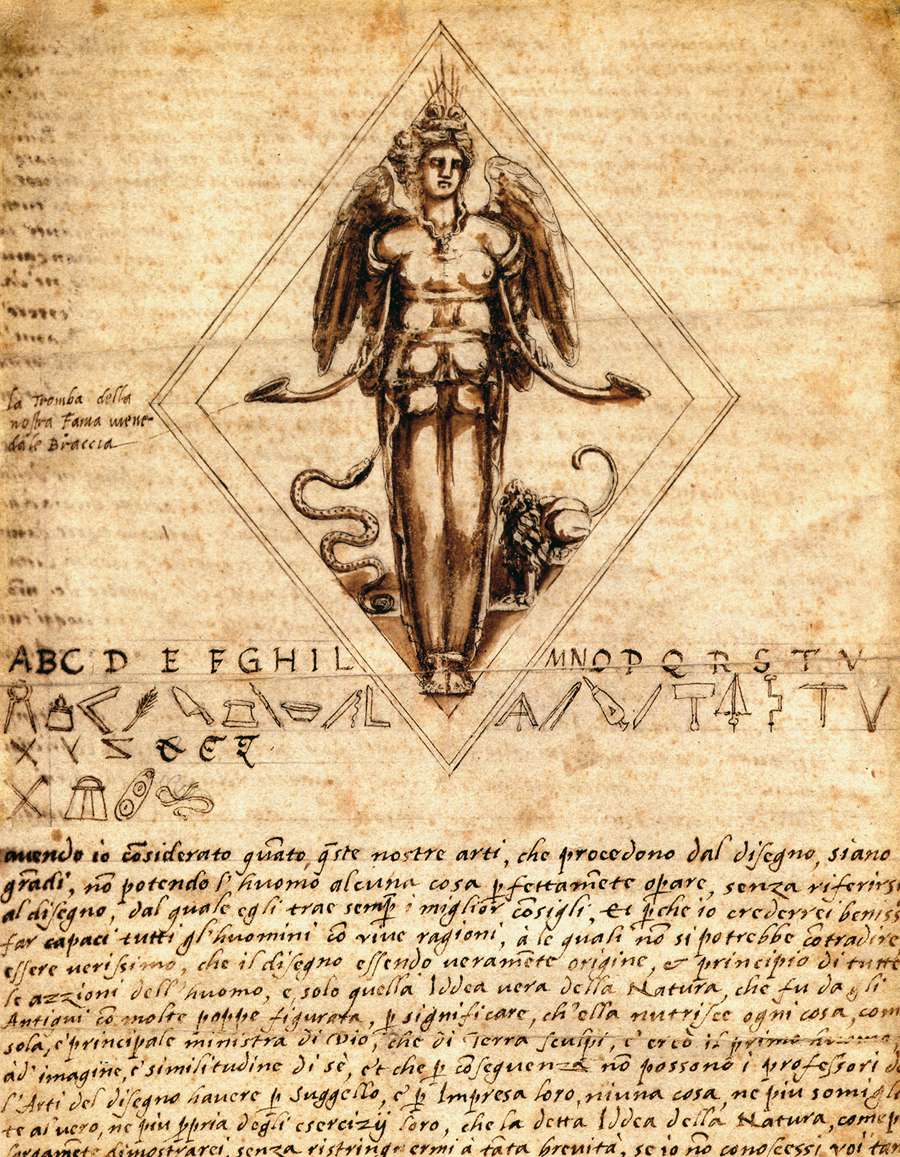 la Tromba della
nostra Fama viene
dále Braccia
ABC D E F G H I L MNO P Q R S T V
X Y Z & E T
auendo io cõsiderato quãto, q̃ste nostre arti, che procedono dal disegno, siano
grãdi, nõ potendo l'huomo alcuna cosa ꝑfettamẽte oꝑare, senza riferirsi
al disegno, dal quale egli trae semꝑ i miglior cõsigli, Et ꝑche io crederrei beniss
far capaci tutti gl'huomini cõ viue ragioni, à le quali nõ si potrebbe cõtradire
essere verissimo, che il disegno essendo veramẽte origine, & principio di tutte
le azzioni dell'huomo, e solo quella Iddea vera della Natura, che fu da gli
Antiqui cõ molte poppe figurata, ꝑ significare, ch'ella nutrisce ogni cosa, com
sola, e' principale ministra di Dio, che di Terra sculpì, e' creò il primo huomo,
ad' imagine, e' similitudine di sè, et che ꝑ cõseguenza nõ possono i professori de
l'Arti del disegno hauere ꝑ Suggello, e' ꝑ Impresa loro, niuna cosa, ne più somigl
te al vero, ne più ꝓpria degli esercizij loro, che la detta Iddea della Natura, come
largamẽte dimostrarei, senza ristringermi à tãta breuità, se io nõ conoscessi voi tan